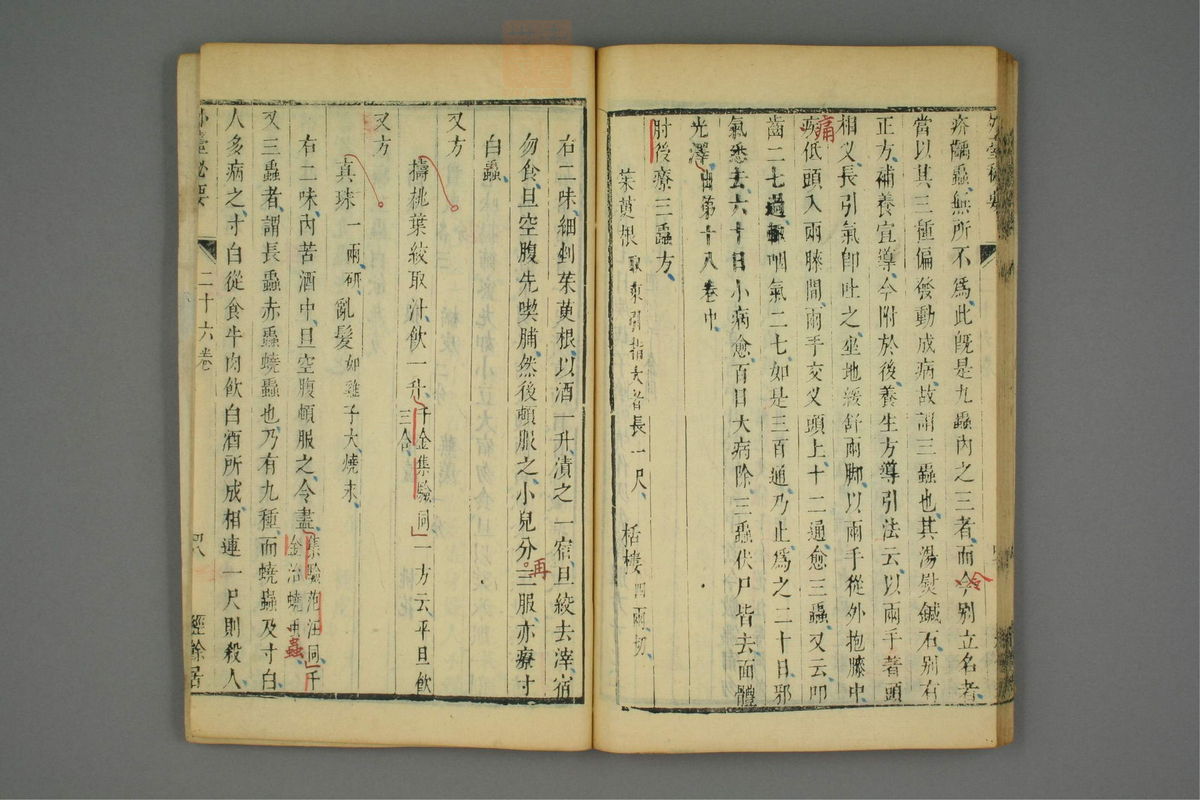 疥䘌蟲無所不爲此既是九蟲內之三者而今別立名者
當以其三種偏發動成病故謂三蟲也其湯熨鍼石别有
正方補養宜導今附於後養生方導引法云以兩手著頭
相叉長引氣即吐之坐地緩舒兩脚以兩手從外抱膝中
疾低頭入兩膝間兩手交叉頭上十二通愈三蟲又云叩
齒二七過輒咽氣二七如是三百通乃止爲之二十日邪
氣悉去六十日小病愈百日大病除三蟲伏尸皆去面體
光澤出第十八卷中
肘後療三蟲方
茱萸根取東引指大者長一尺 栝樓四兩切
右二味細剉茱萸根以酒一升漬之一宿旦絞去滓宿
勿食旦空腹先喫脯然後頓服之小兒分三服亦療寸
白蟲
又方
擣桃葉絞取汁飲一升千金集驗同一方云平旦飲
三合
又方
真珠一兩研亂髮如雞子大燒末
右二味內苦酒中旦空腹頓服之令盡集驗范汪同千
金治蟯蟲
又三蟲者謂長蟲赤蟲蟯蟲也乃有九種而蟯蟲及寸白
人多病之寸白從食牛肉飲白酒所成相連一尺則殺人
外臺祕要 二十六卷 經餘居
痛
令
再
蟲